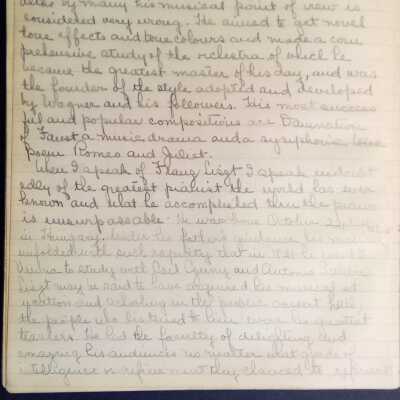 by many his musical point of view is
considered very wrong. He aimed to get novel
tone effects and tone colours and made a com
prehensive study of the orchestra of which he
became the greatest master of his day, and was
the founder of the style adopted and developed
by Wagner and his followers. His most success
ful and popular compositions are Damnation
of Faust a music drama and a symphonic tone
poem Romeo and Juliet.
When I speak of Franz Liszt I speak undoubt
edly of the greatest pianist the world has ever
known and what he accomplished the piano
is unsurpassable. He was born October 22
in Hungary. Under his father's guidance his
unfolded with such rapidity that in he
to study with Carl Czerny and Antonio
Liszt may be said to have acquired his musical ed
ucation and schooling in the public concert hall
the people who listened to him were his greatest
teachers. He had the faculty of delighting and
amazing his audiences no matter what grade of
intelligence or refinement they chanced to represent